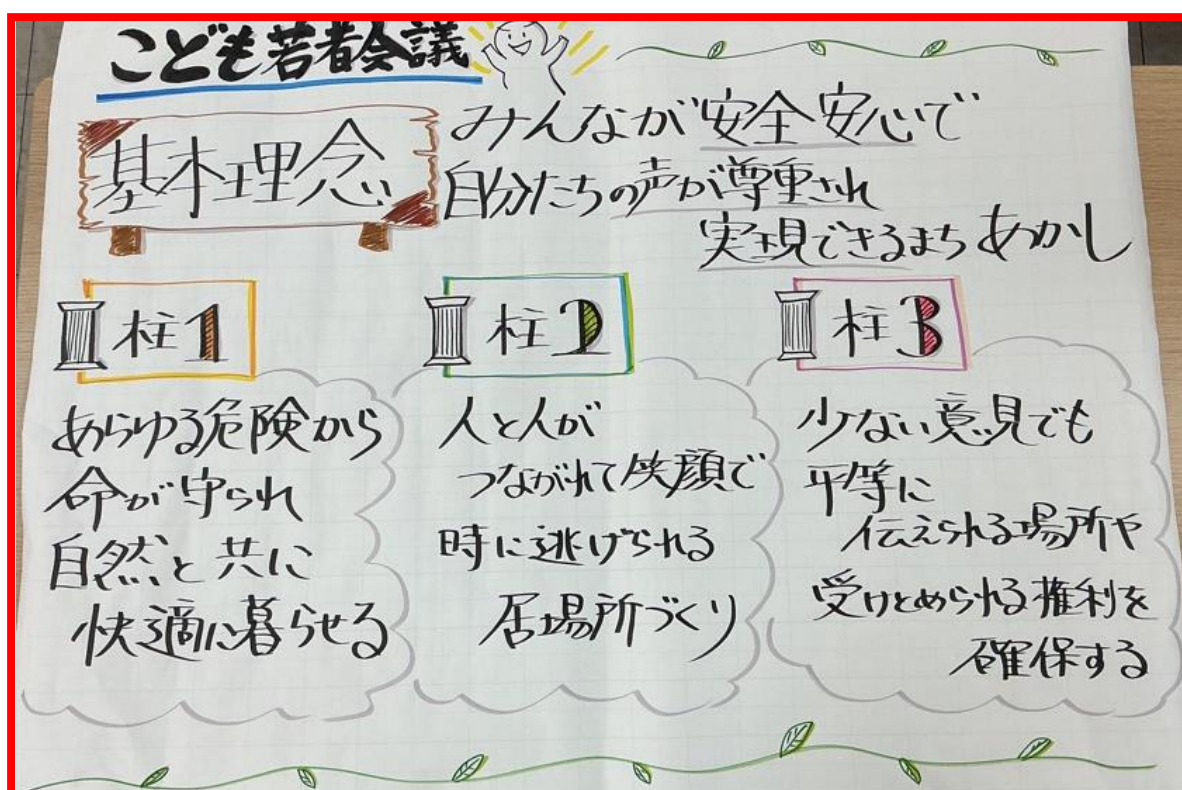 こども若者会議
基本理念
みんなが安全安心で
自分たちの声が尊重され
実現できるまちあかし
柱1
あらゆる危険から
命が守られ
自然と共に
快適に暮らせる
柱2
人と人が
つながれて笑顔で
時に逃げられる
居場所づくり
柱3
少ない意見でも
平等に
伝えられる場所や
受けとめられる権利を
確保する